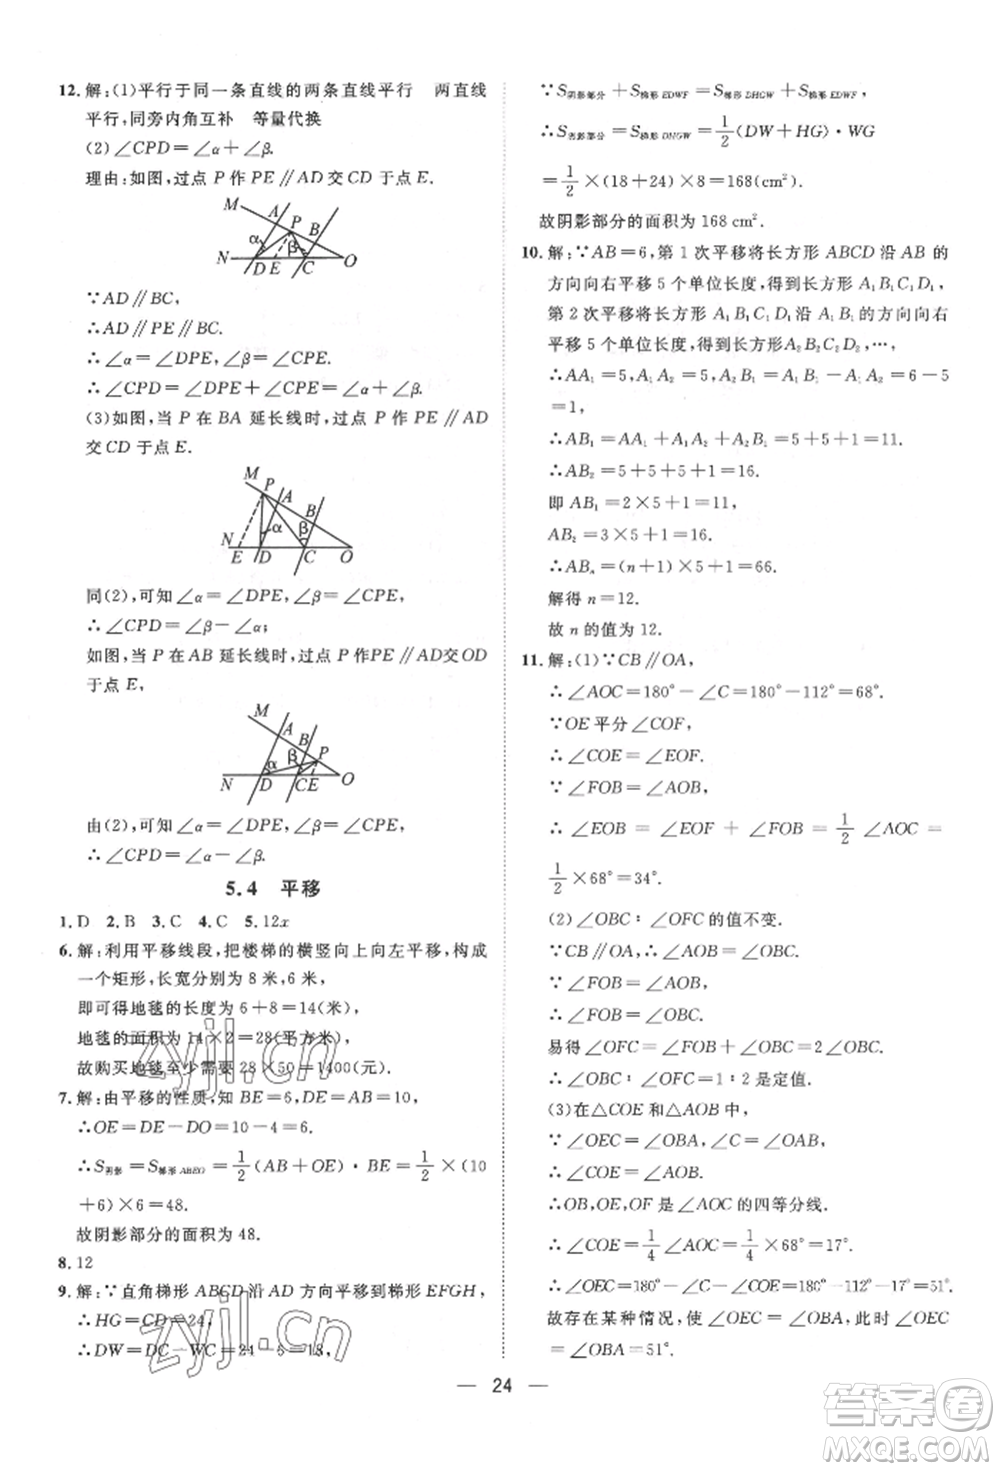 12. 解:(1)平行于同一条直线的两条直线平行 两直线
平行,同旁内角互补 等量代换
(2)∠CPD=∠α+∠β.
理由:如图,过点 P 作 PE∥AD交 CD 于点 E.
M A P B α β N D E C O
∵AD∥BC,
∴AD∥PE∥BC.
∴∠α=∠DPE,∠β=∠CPE.
∴∠CPD=∠DPE+∠CPE=∠α+∠β.
(3)如图,当 P 在 BA 延长线时,过点 P 作 PE∥AD
交 CD 于点 E.
M P A B α β N E D C O
同(2),可知∠α=∠DPE,∠β=∠CPE.
∴∠CPD=∠β-∠α;
如图,当 P 在 AB 延长线时,过点 P 作 PE∥AD交 OD
于点 E,
M A B P α β N D C E O
由(2),可知∠α=∠DPE,∠β=∠CPE.
∴∠CPD=∠α-∠β.
5.4 平移
1. D 2. B 3. C 4. C 5. 12x
6. 解:利用平移线段,把楼梯的横竖向上向左平移,构成
一个矩形,长宽分别为 8 米,6 米,
即可得地毯的长度为 6+8=14(米),
地毯的面积为 14×2=28(平方米),
故购买地毯至少需要 28×50=1400(元).
7. 解:由平移的性质,知 BE=6,DE=AB=10,
∴OE=DE-DO=10-4=6.
∴S阴影=S梯形ABEO=1/2(AB+OE)·BE=1/2×(10
+6)×6=48.
故阴影部分的面积为 48.
8. 12
9. 解:∵直角梯形 ABCD沿 AD 方向平移到梯形 EFGH,
∴HG=CD=24,
∴DW=DC-WC=24-6=18,
∵S阴影部分+S梯形EDWF=S梯形DHGW+S梯形EDWF,
∴S阴影部分=S梯形DHGW=1/2(DW+HG)·WG
=1/2×(18+24)×8=168(cm²).
故阴影部分的面积为 168 cm².
10. 解:∵AB=6,第 1 次平移将长方形 ABCD 沿 AB 的
方向向右平移 5 个单位长度,得到长方形 A₁B₁C₁D₁,
第 2 次平移将长方形 A₁B₁C₁D₁ 沿 A₁B₁ 的方向向右
平移 5 个单位长度,得到长方形A₂B₂C₂D₂,…,
∴AA₁=5,A₁A₂=5,A₂B₁=A₁B₁-A₁A₂=6-5
=1,
∴AB₁=AA₁+A₁A₂+A₂B₁=5+5+1=11.
∴AB₂=5+5+5+1=16.
即 AB₁=2×5+1=11,
AB₂=3×5+1=16.
∴ABₙ=(n+1)×5+1=66.
解得 n=12.
故 n 的值为 12.
11. 解:(1)∵CB∥OA,
∴∠AOC=180°-∠C=180°-112°=68°.
∵OE平分∠COF,
∴∠COE=∠EOF.
∵∠FOB=∠AOB,
∴∠EOB=∠EOF+∠FOB=1/2∠AOC=
1/2×68°=34°.
(2)∠OBC∶∠OFC 的值不变.
∵CB∥OA,∴∠OBC=∠AOB.
∵∠FOB=∠AOB,
∴∠FOB=∠OBC.
易得∠OFC=∠FOB+∠OBC=2∠OBC,
∴∠OBC∶∠OFC=1∶2 是定值.
(3)在△COE和△AOB中,
∵∠OEC=∠OBA,∠C=∠OAB,
∴∠COE=∠AOB.
∴OB,OE,OF是∠AOC的四等分线.
∴∠COE=1/4∠AOC=1/4×68°=17°.
∴∠OEC=180°-∠C-∠COE=180°-112°-17°=51°.
故存在某种情况,使∠OEC=∠OBA,此时∠OEC=
∠OBA=51°.
— 24 —
zyjl.cn
zyjl.cn
答案圈
MXQE.COM